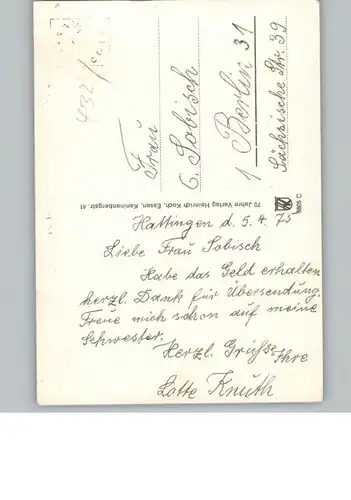 Hattingen d. 5.4.75
Liebe Frau Sobisch
Habe das Geld erhalten
herzl. Dank für Übersendung.
Freue mich schon auf meine
Schwester.
Herzl. Grüße Ihre
Lotte Knuth
70 Jahre Verlag Heinrich Koch, Essen, Kaninenbergstr. 41
Frau
G. Sobisch
1 Berlin 31
Sächsische Str. 39